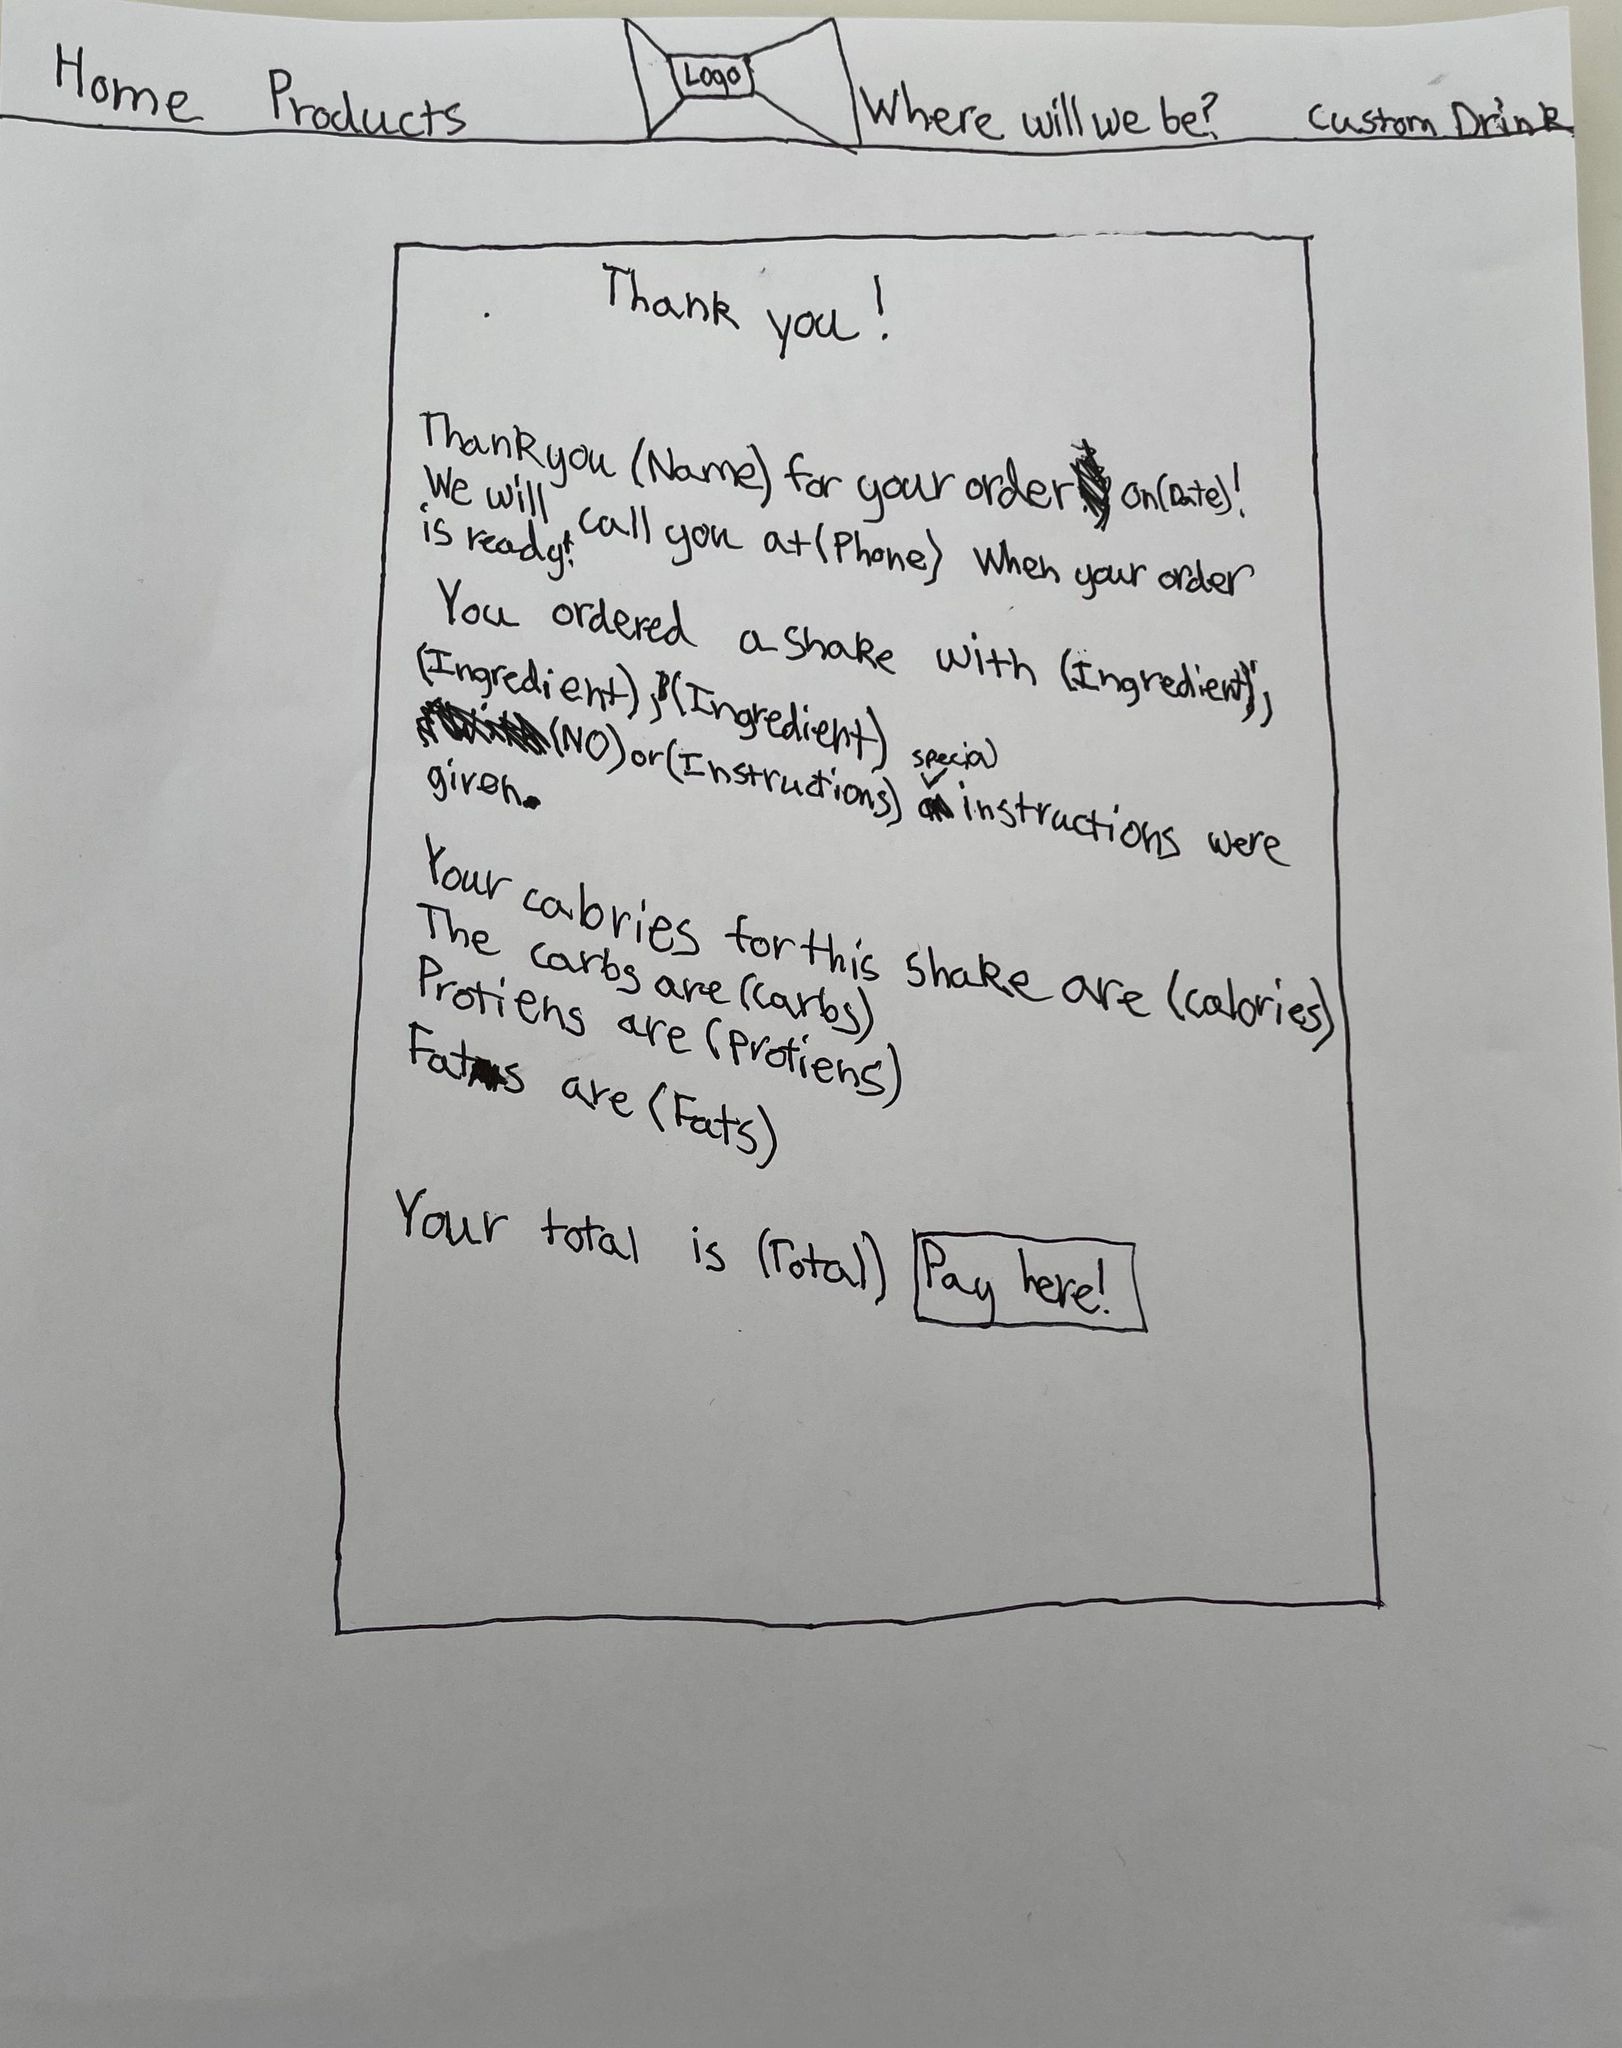 Home Products Logo Where will we be? Custom Drink
Thank you!
Thank you (Name) for your order on (Date)!
We will call you at (Phone) when your order
is ready!
You ordered a shake with (Ingredient),
(Ingredient), (Ingredient)
(NO) or (Instructions) special instructions were
given.
Your calories for this shake are (calories)
The carbs are (carbs)
Protiens are (Protiens)
Fats are (Fats)
Your total is (Total) Pay here!